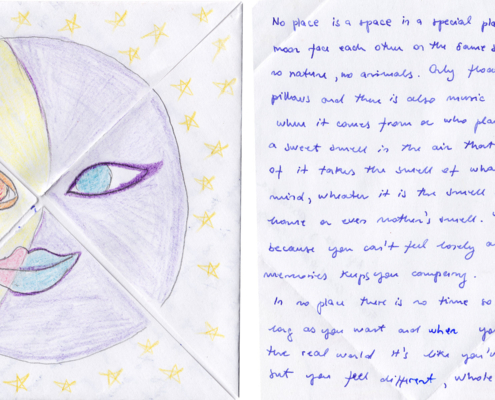 No place is a space in a special pla
moon face each other on the same s
no nature, no animals. Only floa
pillows and there is also music
when it comes from or who pla
a sweet smell in the air that
of it takes the smell of wha
mind, wheater it is the smell
house or even mother's smell.
because you can't feel lonely a
memories keeps you company.
In no place there is no time so
long as you want and when yo
the real world it's like you'v
but you feel different, whole